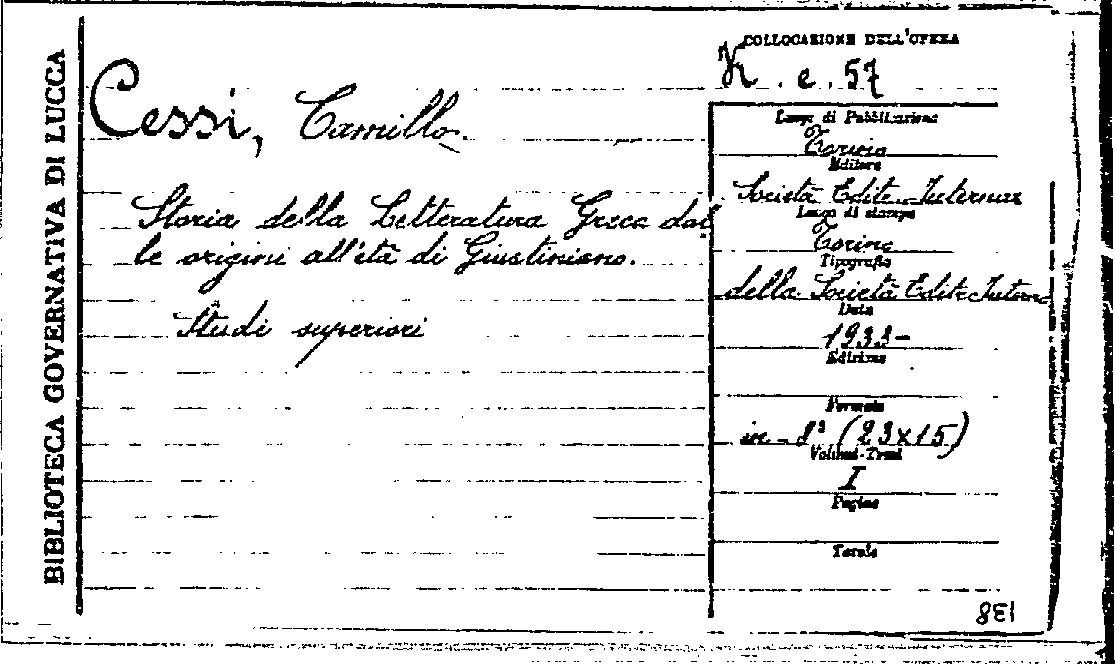 BIBLIOTECA GOVERNATIVA DI LUCCA
COLLOCAZIONE DELL'OPERA
K. e. 57
Cessi, Camillo.
Storia della Letteratura Greca dal
le origini all'età di Giustiniano.
Studi superiori
Luogo di Pubblicazione
Torino
Editore
Società Edit. Internaz
Luogo di stampa
Torino
Tipografia
della Società Edit. Intern
Data
1933-
Edizione
Formato
in-8° (23x15)
Volumi-Tomi
I
Pagine
Tavole
138